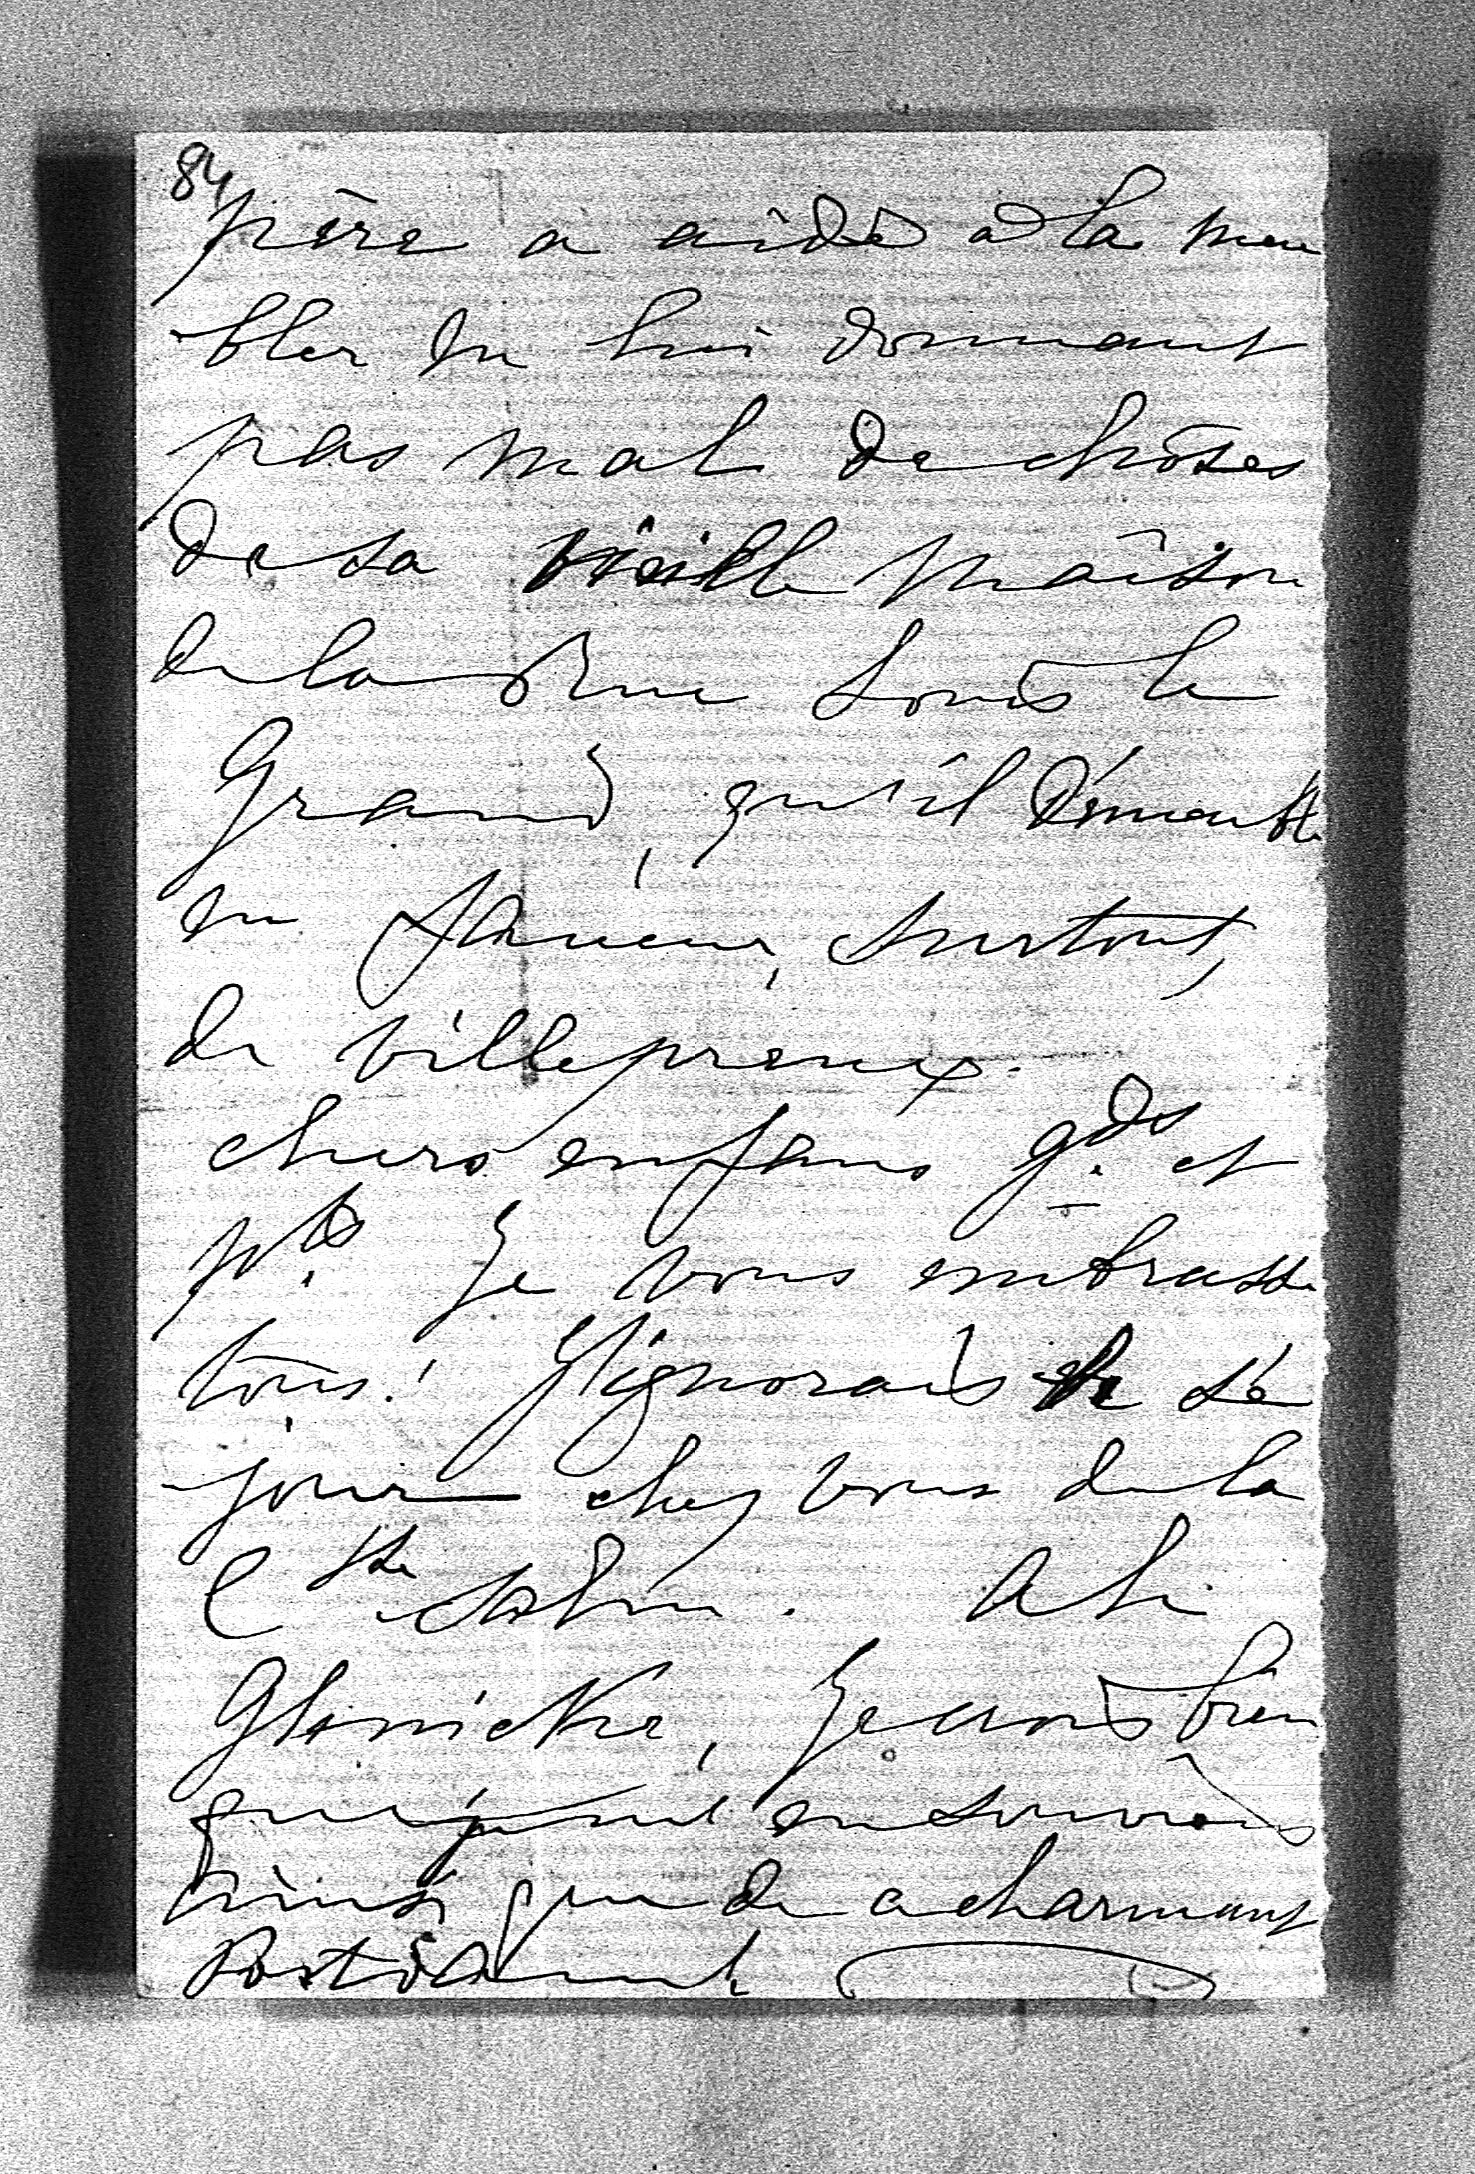 84
père a aidé à la meu
bler en lui donnant
pas mal de choses
de sa vieille maison
de la Rue Louis le
Grand, qu'il démeuble
en faveur, surtout,
de Villepreux.
chers enfans gds et
pts Je vous embrasse
tous! J'ignorais le sé
jour chez vous de la
Ctsse. Ah
Glienicke, Je crois bien
que je m'en souviens
ainsi que de ce charmant
Postdam!